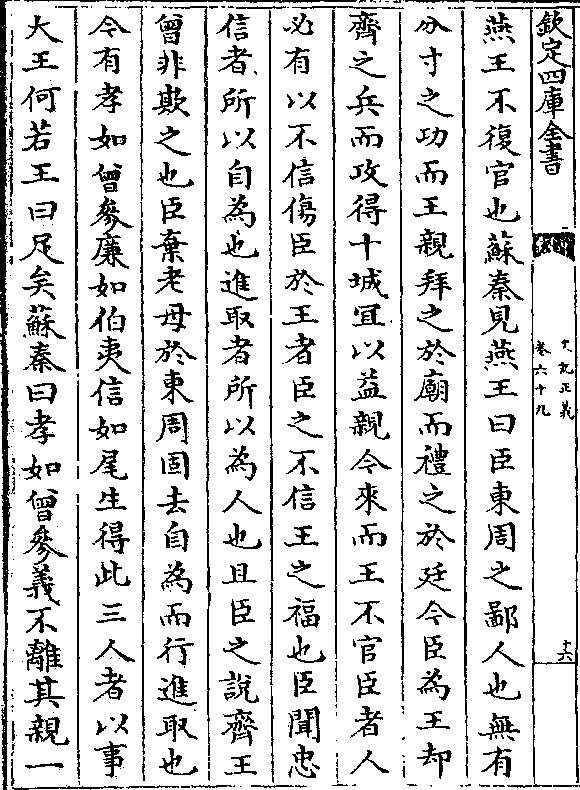 欽定四庫全書
史記正義
卷六十九
十六
燕王不復官也蘇秦見燕王曰臣東周之鄙人也無有
分寸之功而王親拜之於廟而禮之於廷今臣為王却
齊之兵而攻得十城宜以益親今來而王不官臣者人
必有以不信傷臣於王者臣之不信王之福也臣聞忠
信者所以自為也進取者所以為人也且臣之說齊王
曾非欺之也臣棄老母於東周固去自為而行進取也
今有孝如曾參廉如伯夷信如尾生得此三人者以事
大王何若王曰足矣蘇秦曰孝如曾參義不離其親一